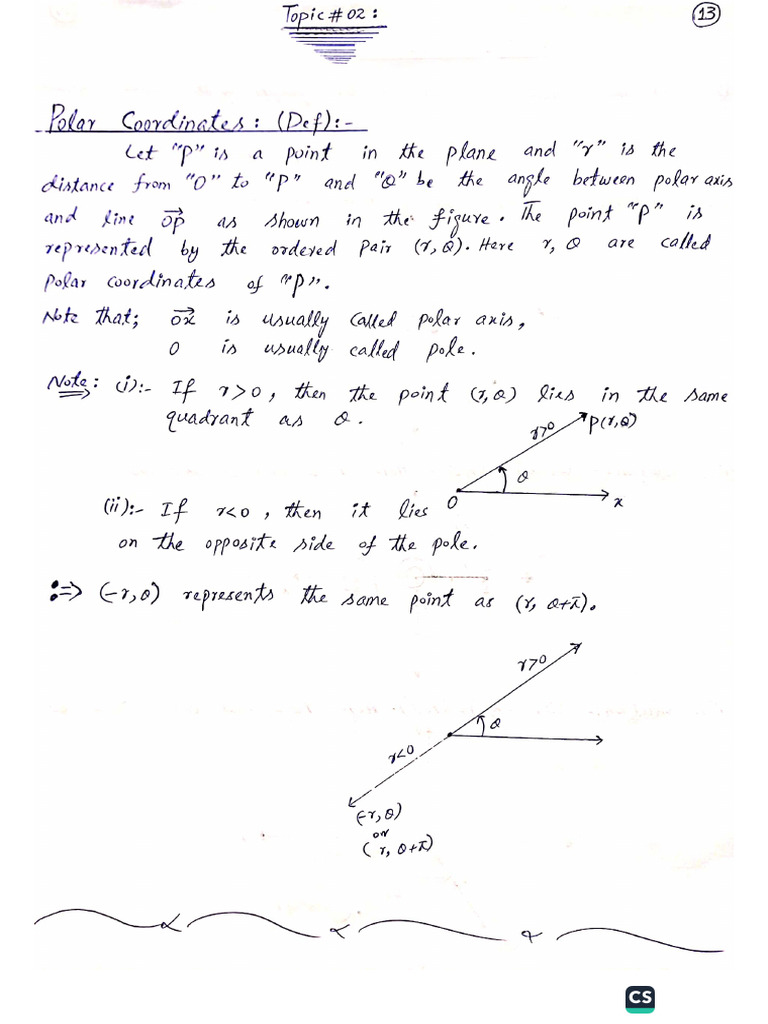 Topic # 02 :
13
Polar Coordinates : (Def):-
Let "P" is a point in the plane and "r" is the
distance from "O" to "P" and "θ" be the angle between polar axis
and line \overrightarrow{OP} as shown in the figure. The point "P" is
represented by the ordered pair (r, θ). Here r, θ are called
polar coordinates of "P".
Note that; \overrightarrow{OX} is usually called polar axis,
O is usually called pole.
Note: (i):- If r>0, then the point (r,θ) lies in the same
quadrant as θ.
r>0
P(r,θ)
θ
O
x
(ii):- If r<0, then it lies
on the opposite side of the pole.
:⇒ (-r,θ) represents the same point as (r, θ+π).
r>0
θ
r<0
(-r, θ)
or
(r, θ+π)
CS